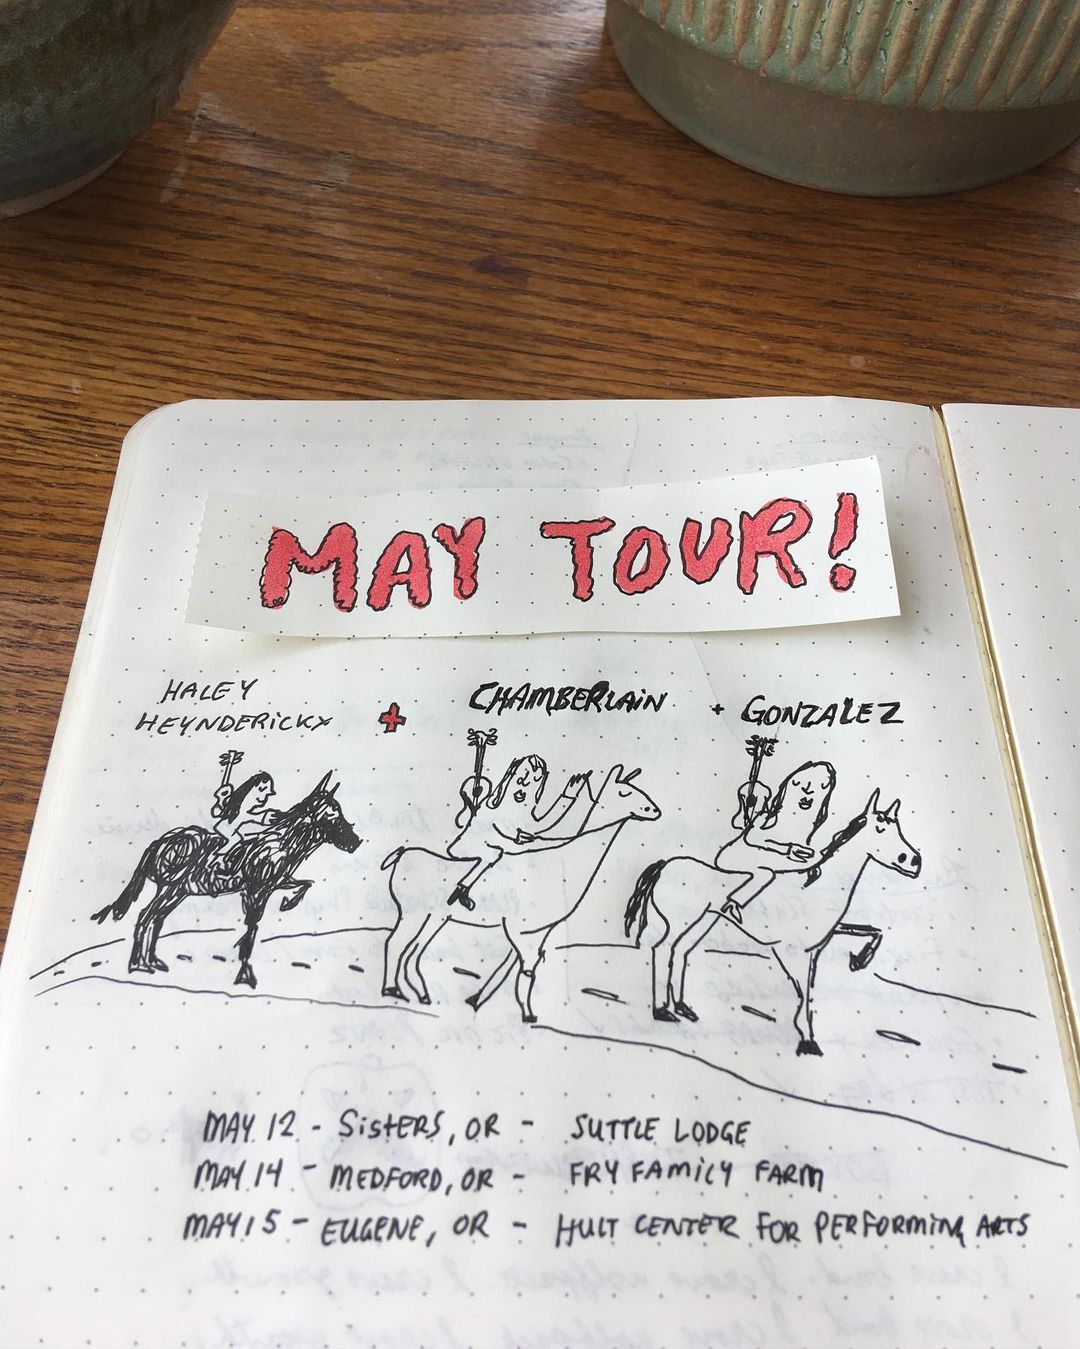 MAY TOUR!
HALEY
HEYNDERICKX + CHAMBERLAIN + GONZALEZ
MAY 12 - SISTERS, OR - SUTTLE LODGE
MAY 14 - MEDFORD, OR - FRY FAMILY FARM
MAY 15 - EUGENE, OR - HULT CENTER FOR PERFORMING ARTS